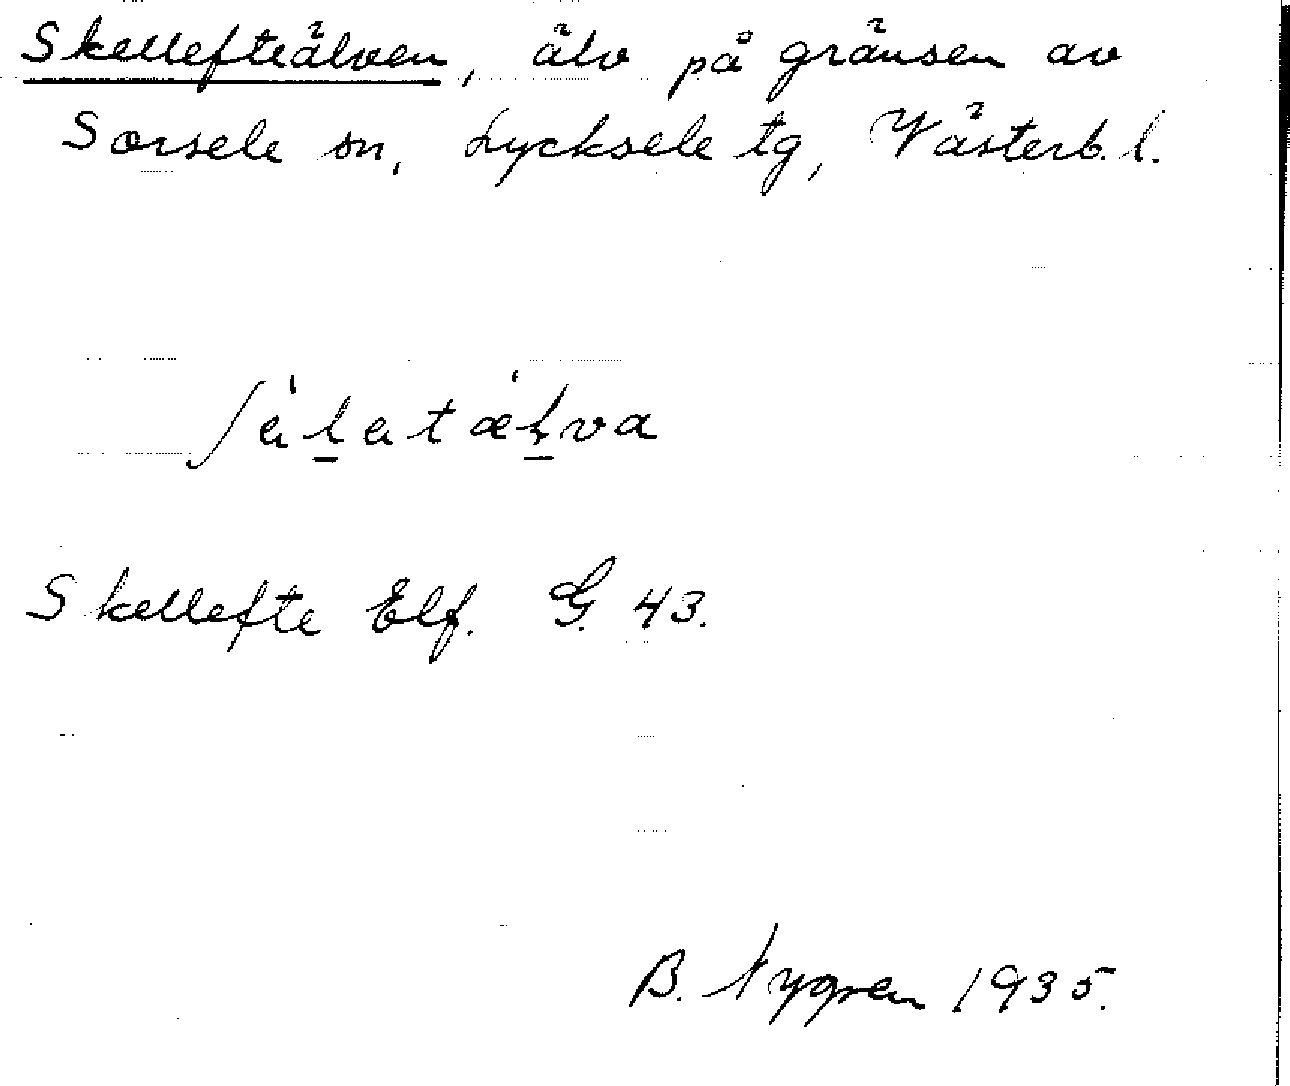 Skellefteälven, älv på gränsen av
Sorsele sn, Lycksele tg, Västerb. l.
Skellefte Elf. G. 43.
B. Nygren 1935.